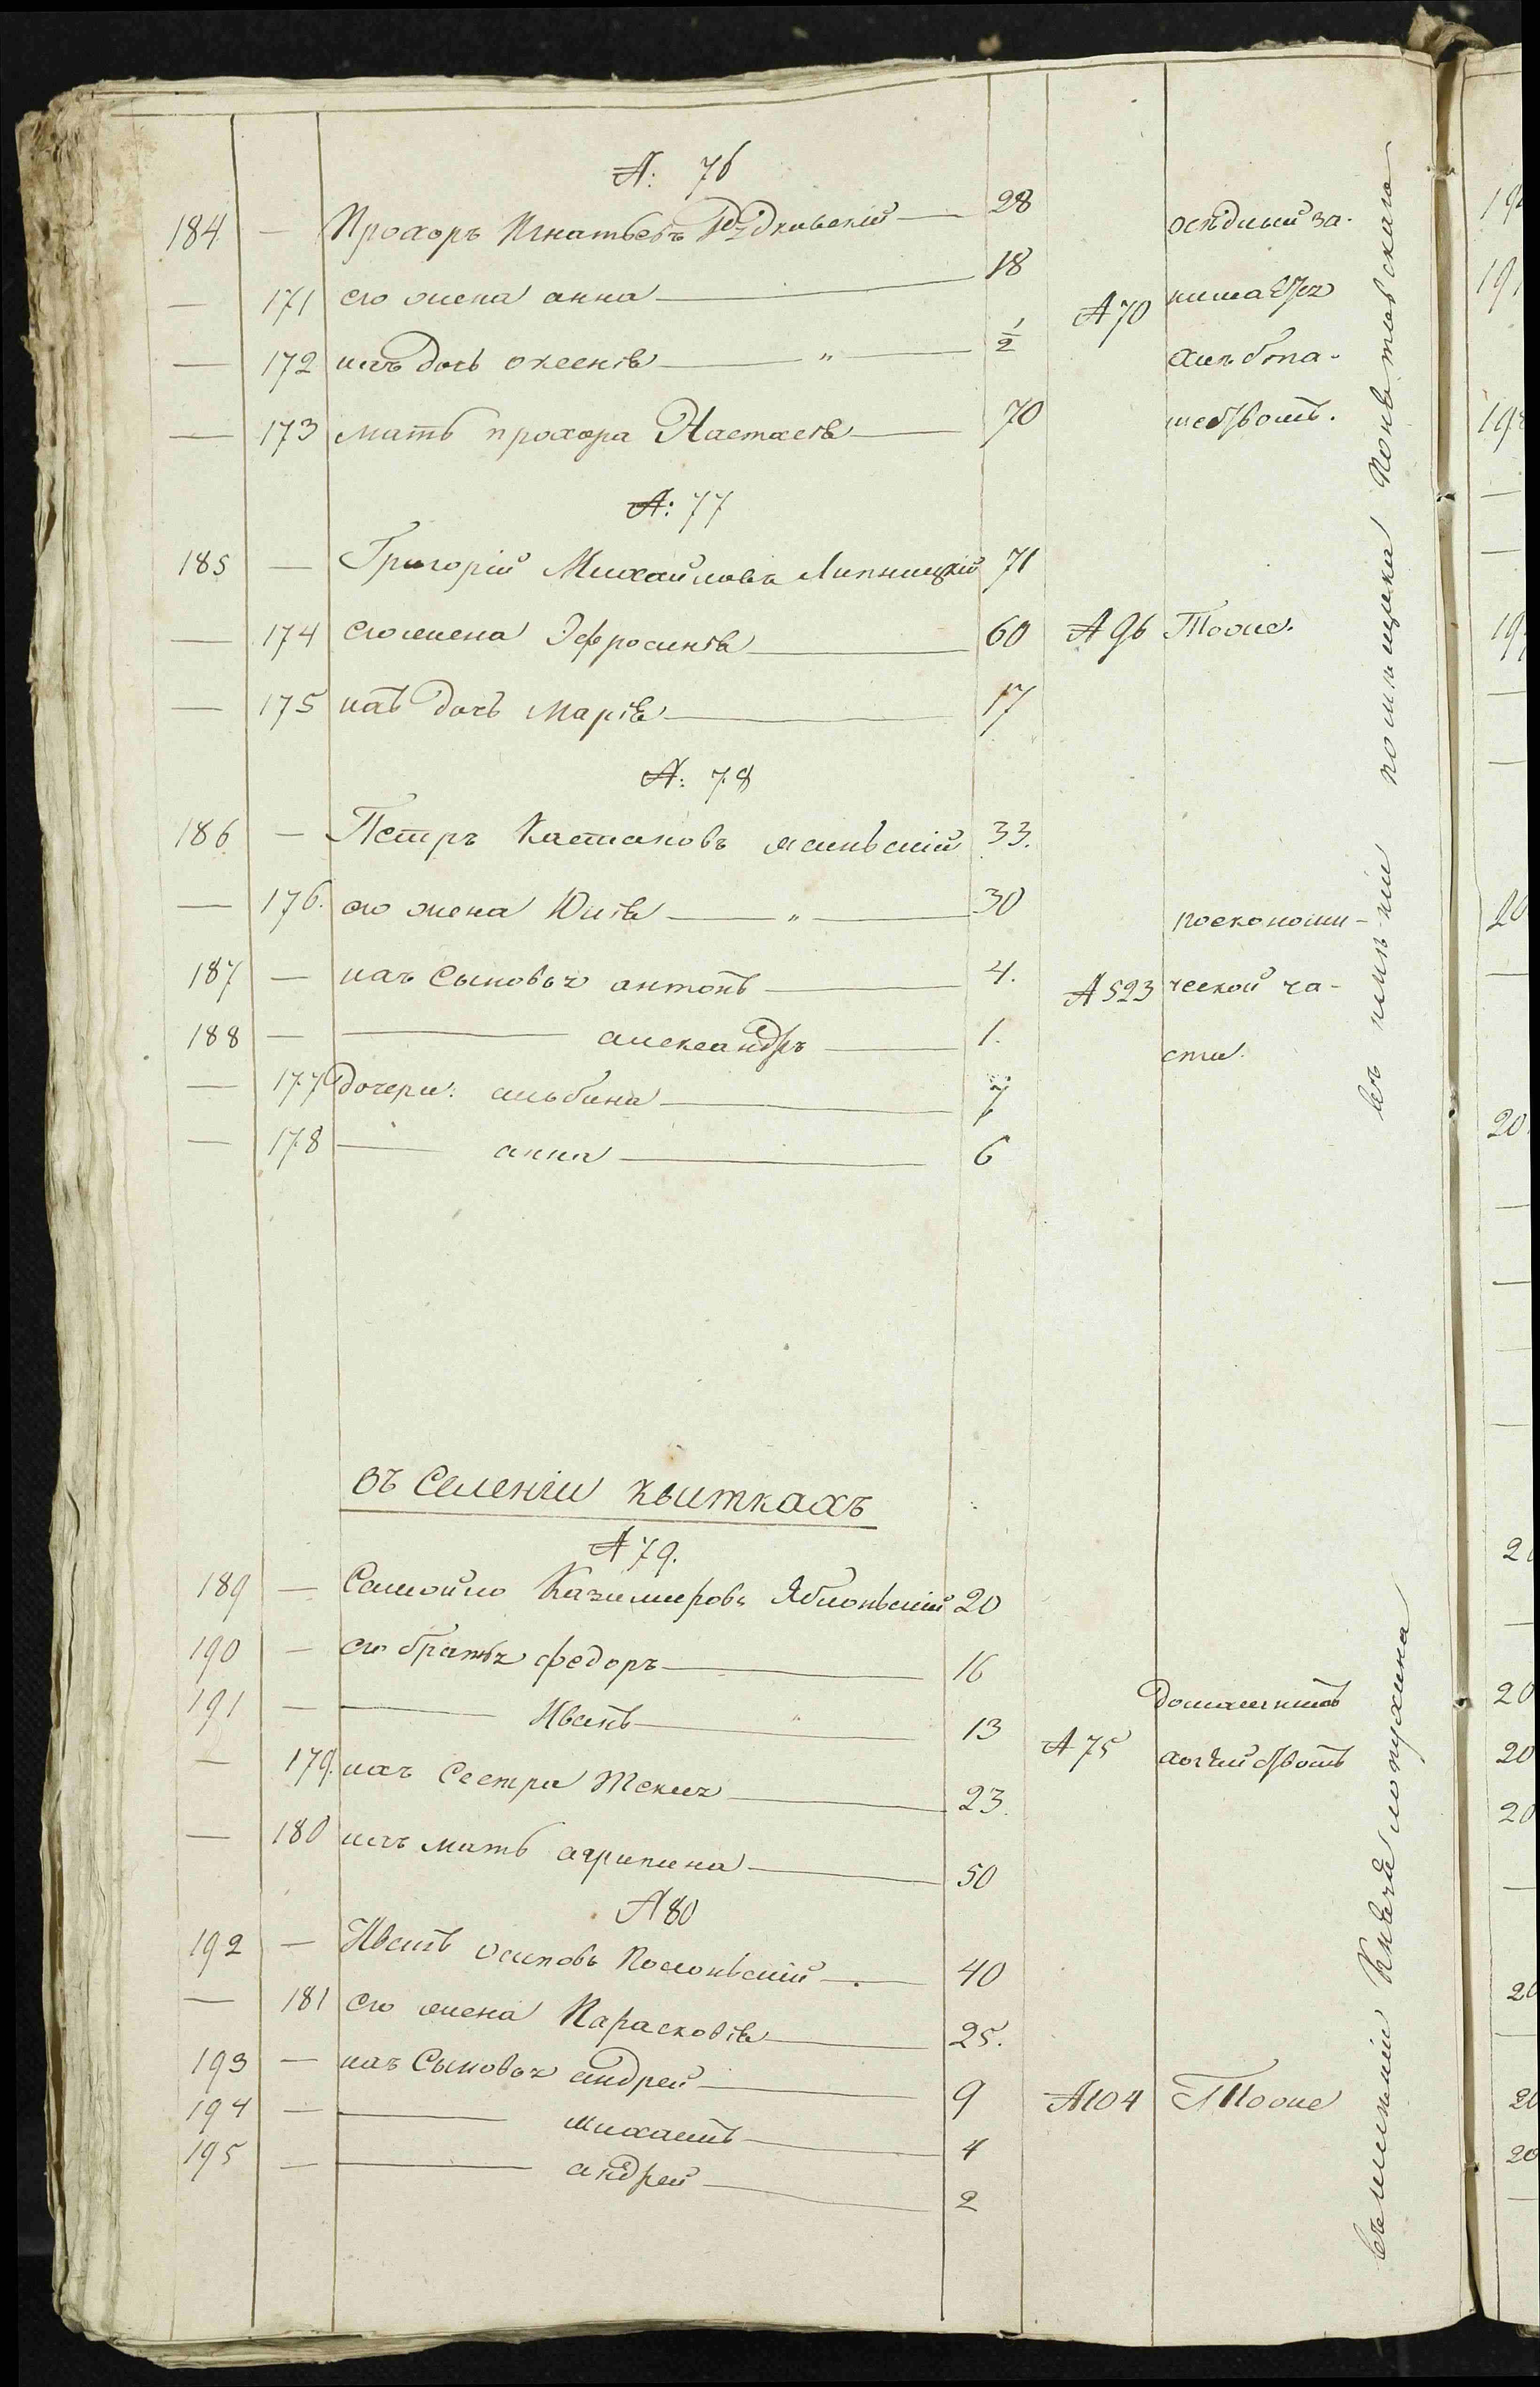 №: 76
184 — Прохоръ Игнатьевъ Рѣдковскій — 28 осѣдлый за-
— 171 его жена анна — 18 № 70 нимается
— 172 ихъ дочь оксенія — " — 1/2 хлѣбопа-
— 173 мать прохора Настасія — 70 шествомъ.
№: 77
185 — Григорій Михайловъ Липницкій 71
— 174 его жена Эфросинія — 60 № 96 Тоже.
— 175 ихъ дочь Марія — 17
№: 78
186 — Петръ Кастановъ 33.
— 176. его жена Юлія — " — 30 поэкономи-
187 — ихъ Сыновья антонъ — 4. № 523 ческой ча-
188 — — александръ — 1. сти.
— 177 дочери: альбина — 7
— 178 — анна — 6
въ имѣніи помѣщика Понятовскаго
въ Селеніи Квиткахъ
№ 79.
189 — Самойло Казимировъ Яблонвскій 20
190 — его братья федоръ — 16
191 — — Иванъ — 13 домашнимъ
— 179. ихъ Сестра Текля — 23. № 75 хозяйствомъ
— 180 ихъ мать агрипина — 50
№ 80
192 — Иванъ осиповъ Послонвскій — 40
— 181 его жена Парасковія — 25.
193 — ихъ Сыновья андрей — 9 № 104 Тоже
194 — — михаилъ — 4
195 — — андрей — 2
въ имѣніи Князя лопухина